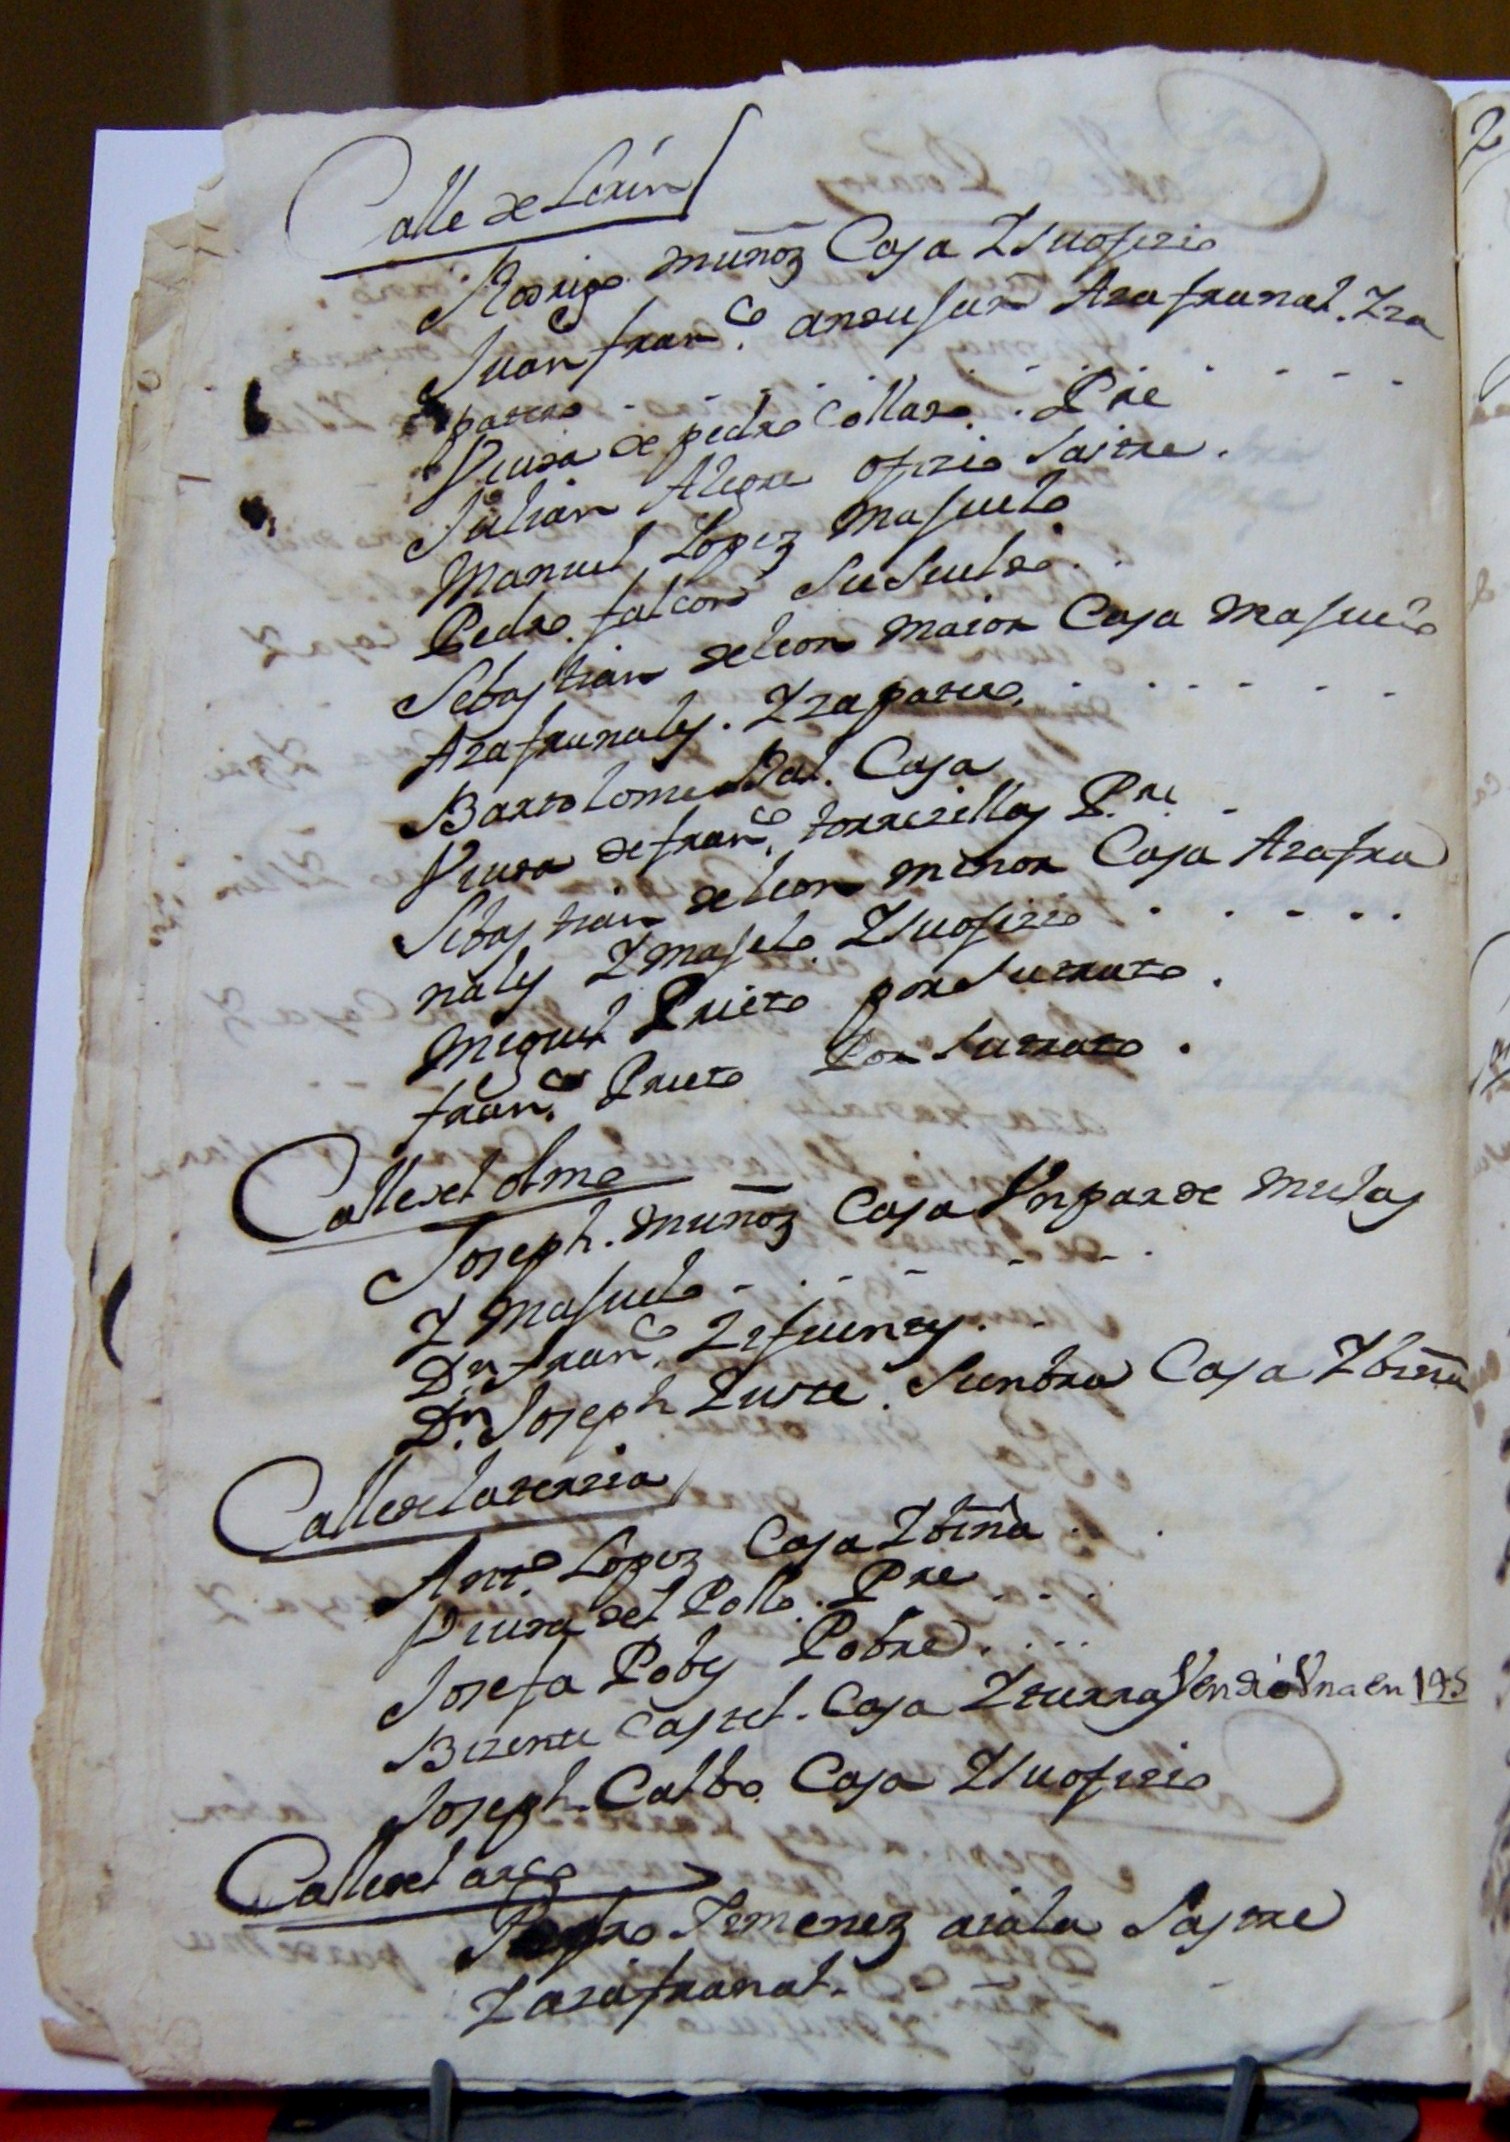 Calle de Lerin
Rodrigo Muñoz Casa Ysuofizio
Juan franco. andusar Azafranal. Yza
patero
Viuda de pedro Collaso. Pre
Julian Alegre ofizio Sastre.
Manuel Lopez Masuelo
Pedro falcon Su Sueldo.
Sebastian deleon maior Casa masuelo
Azafranales. Yzapatero.
Bartolome Casa
Viuda defranco. torrezillas P.re
Sebastian deleon menor Casa Azafra
nales Ymaselo. Ysuofizio
Miguel Prieto porsutrato.
franco. Prieto Por Sutrato.
Calledel olmo
Joseph. muñoz Casa Vnparde mulas
Y Masuelo
Dn. franco. Zifuentes.
Dn. Joseph Yuste. Casa Ybiña
Calledelaterzia
Anto. Lopez Casa Ybiña
Viuda del Pollo. Pre
Josefa Pobre
Bizente Castel. Casa Ytierras Vendio Vna en
Joseph. Calbo. Casa Ysuofizio
Calledel arco
Pedro Ximenez aiala Sastre
Yazafranal.